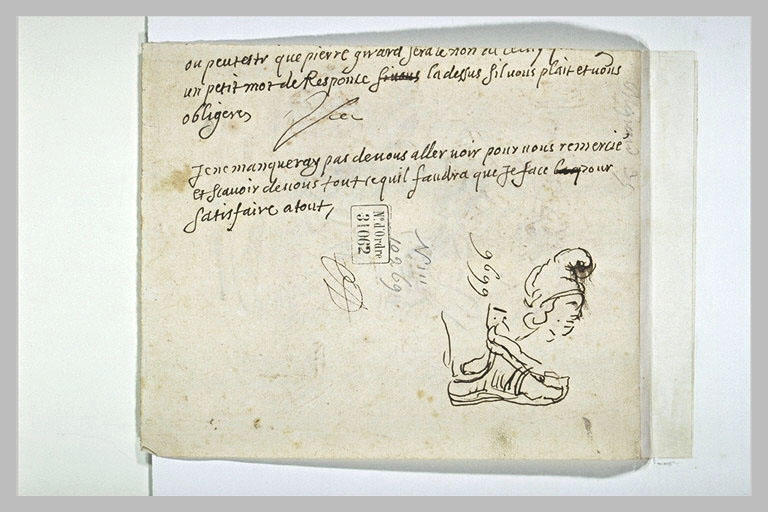 ou peutestr que pierre girard serat le non de
un petit mot de Response sivous la dessus sil vous plait et vous
obligeres
Je ne manqueray pas de vous aller voir pour vous remercie
et scavoir de vous tout ce quil faudra que Je face pour
satisfaire a tout,
N° d'Ordre
31062
N III
10269
9699